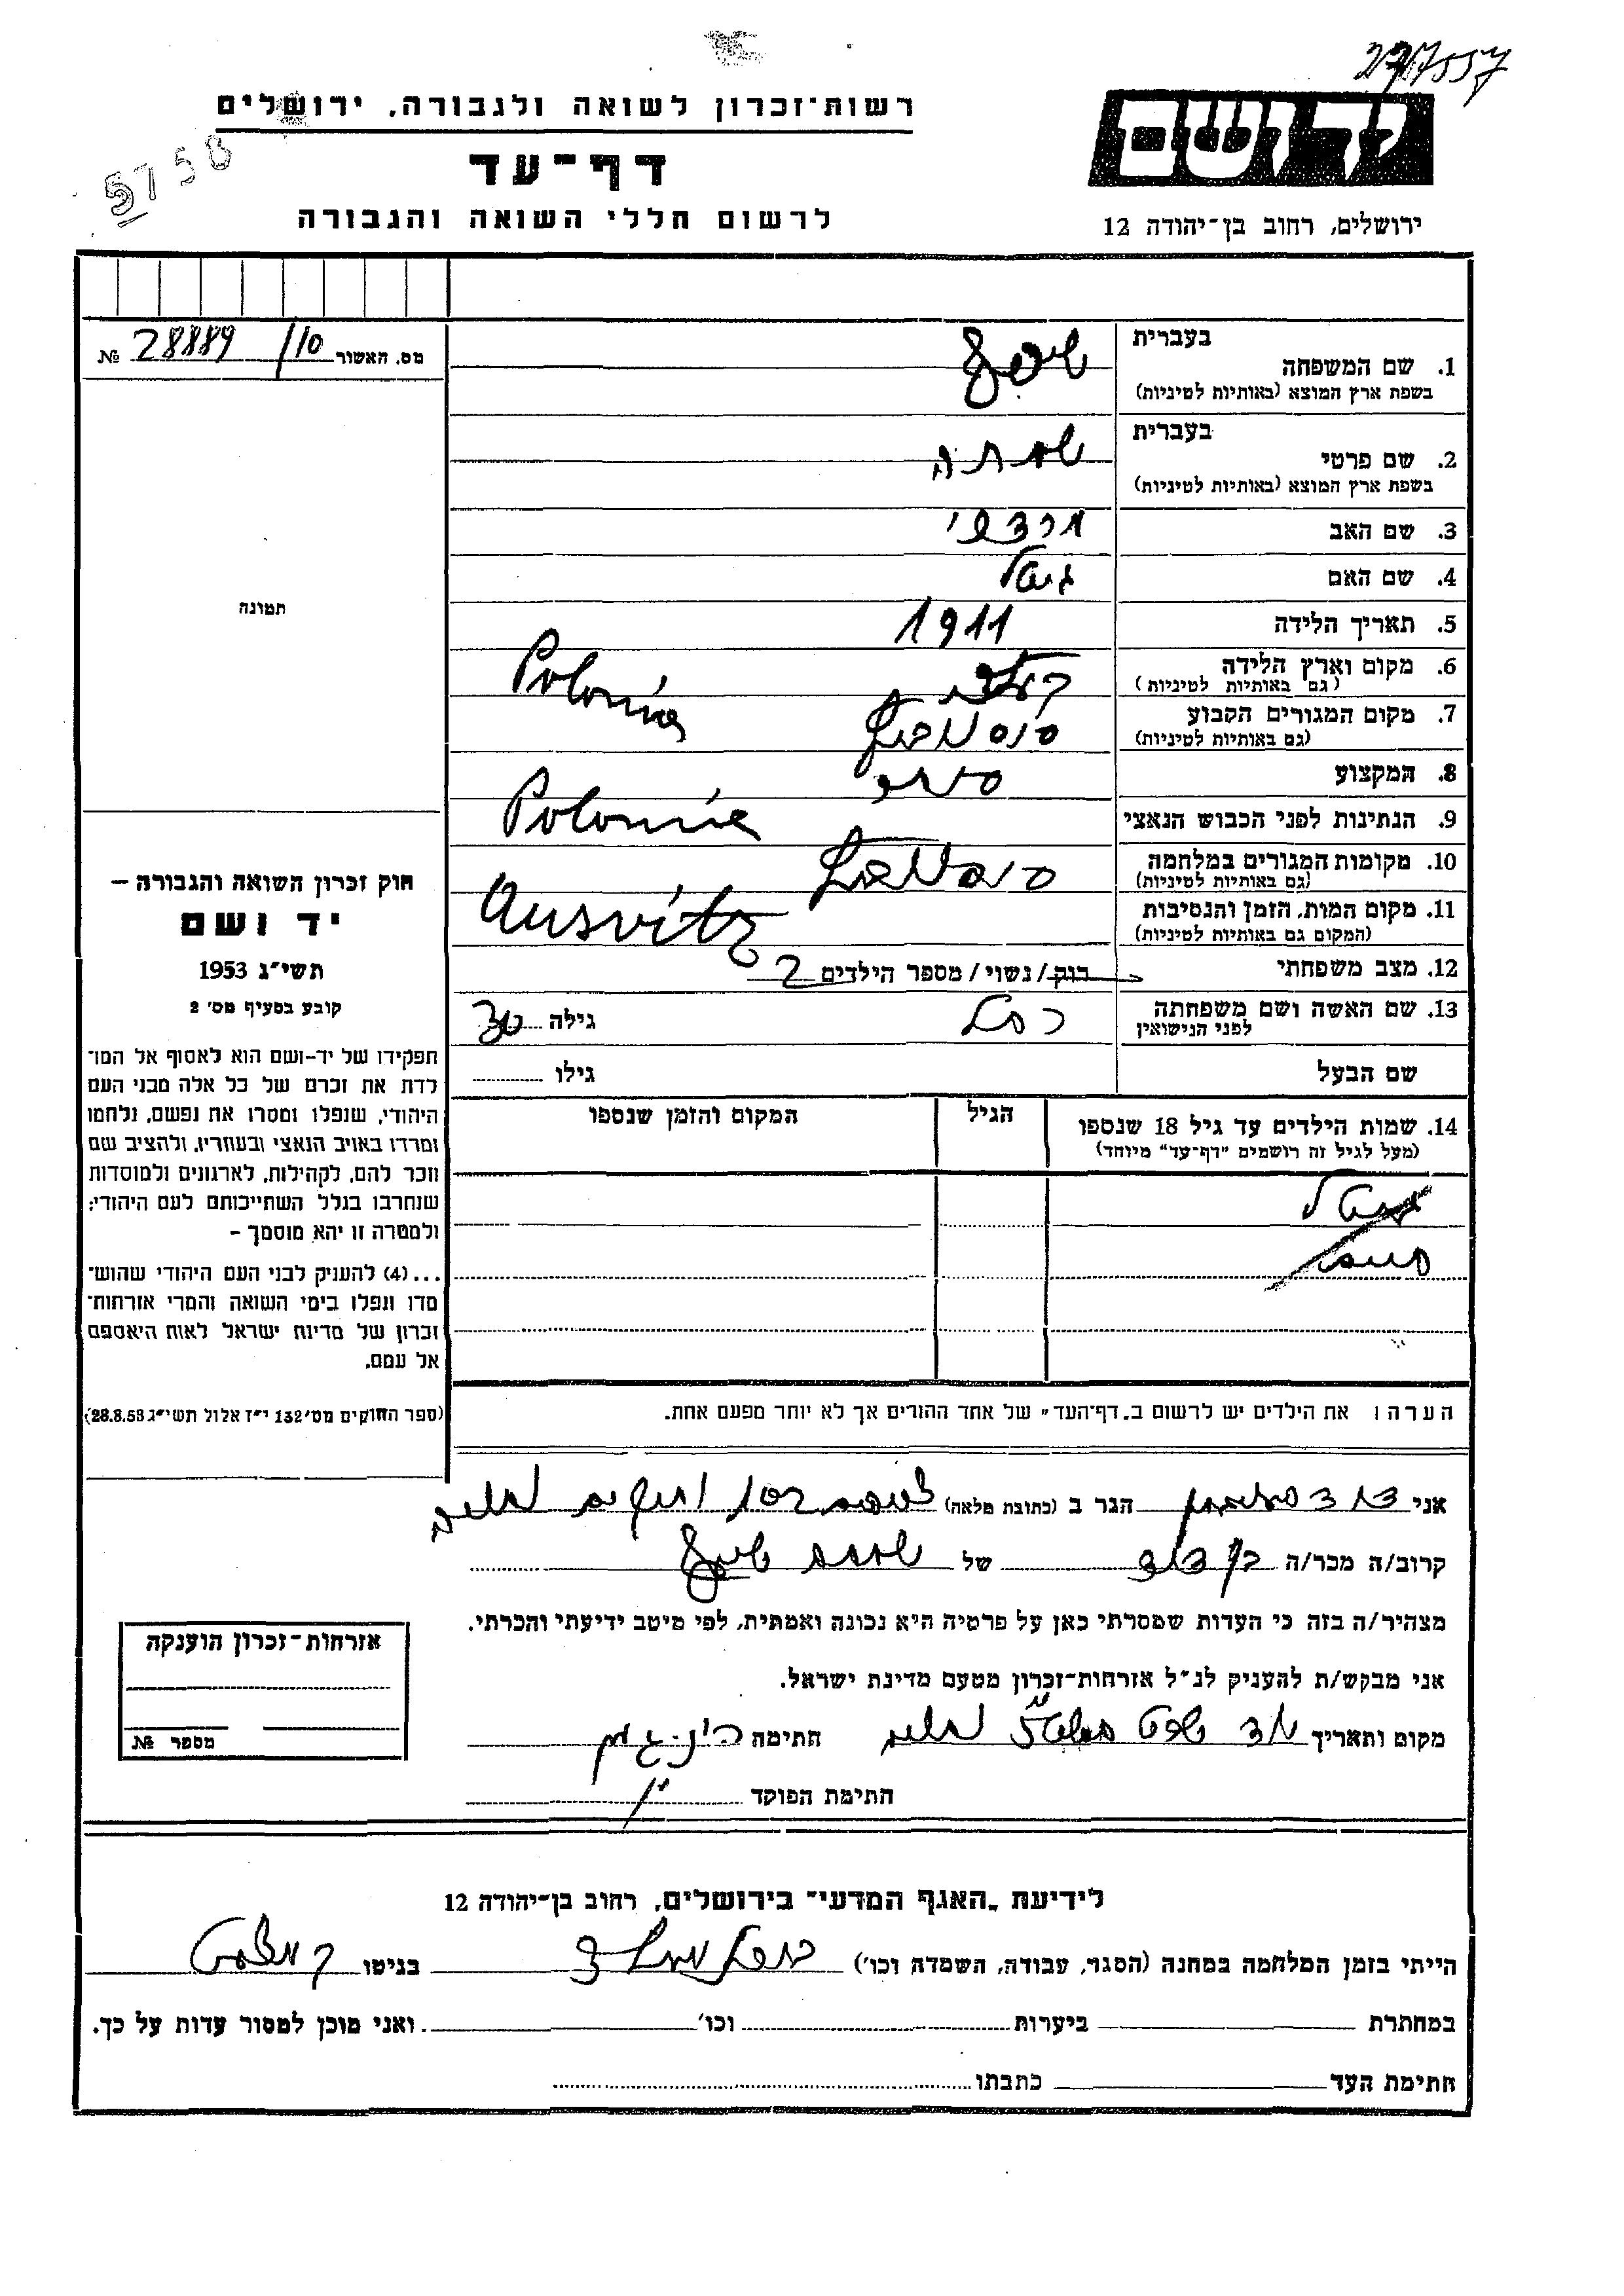 277557
רשות-זכרון לשואה ולגבורה, ירושלים
יד ושם
5758
דף-עד
לרשום חללי השואה והגבורה
ירושלים, רחוב בן-יהודה 12
מס. האשור 10/ 28889 №
בעברית
1. שם המשפחה
בשפת ארץ המוצא (באותיות לטיניות)
בעברית
2. שם פרטי שמחה
בשפת ארץ המוצא (באותיות לטיניות)
3. שם האב מרדכי
4. שם האם גיטל
5. תאריך הלידה 1911
6. מקום וארץ הלידה Polonia
(גם באותיות לטיניות)
7. מקום המגורים הקבוע
(גם באותיות לטיניות)
8. המקצוע סוחר
9. הנתינות לפני הכבוש הנאצי Polonia
10. מקומות המגורים במלחמה
(גם באותיות לטיניות)
11. מקום המות, הזמן והנסיבות Ausvitz
(המקום גם באותיות לטיניות)
12. מצב משפחתי רווק/נשוי/מספר הילדים 2
13. שם האשה ושם משפחתה רחל גילה
לפני הנישואין
שם הבעל גילו
14. שמות הילדים עד גיל 18 שנספו הגיל המקום והזמן שנספו
(מעל לגיל זה רושמים "דף-עד" מיוחד)
תמונה
חוק זכרון השואה והגבורה –
יד ושם
תשי"ג 1953
קובע בסעיף מס' 2
תפקידו של יד-ושם הוא לאסוף אל המו־
לדת את זכרם של כל אלה מבני העם
היהודי, שנפלו ומסרו את נפשם, נלחמו
ומרדו באויב הנאצי ובעוזריו, ולהציב שם
וזכר להם, לקהילות, לארגונים ולמוסדות
שנחרבו בגלל השתייכותם לעם היהודי;
ולמטרה זו יהא מוסמך –
...(4) להעניק לבני העם היהודי שהוש־
מדו ונפלו בימי השואה והמרי אזרחות־
זכרון של מדינת ישראל לאות היאספם
אל עמם.
(ספר החוקים מס' 132 י"ז אלול תשי"ג 28.8.53)
הערה: את הילדים יש לרשום ב"דף-העד" של אחד ההורים אך לא יותר מפעם אחת.
אני הגר ב (כתובת מלאה)
קרוב/ה מכר/ה בן דוד של
מצהיר/ה בזה כי העדות שמסרתי כאן על פרטיה היא נכונה ואמתית, לפי מיטב ידיעתי והכרתי.
אני מבקש/ת להעניק לנ"ל אזרחות-זכרון מטעם מדינת ישראל.
מקום ותאריך חתימה
חתימת הפוקד
אזרחות-זכרון הוענקה
מספר №
לידיעת "האגף המדעי" בירושלים, רחוב בן-יהודה 12
הייתי בזמן המלחמה במחנה (הסגר, עבודה, השמדה וכו') בוכנוולד בגיטו
במחתרת ביערות וכו' ואני מוכן למסור עדות על כך.
חתימת העד כתבתו